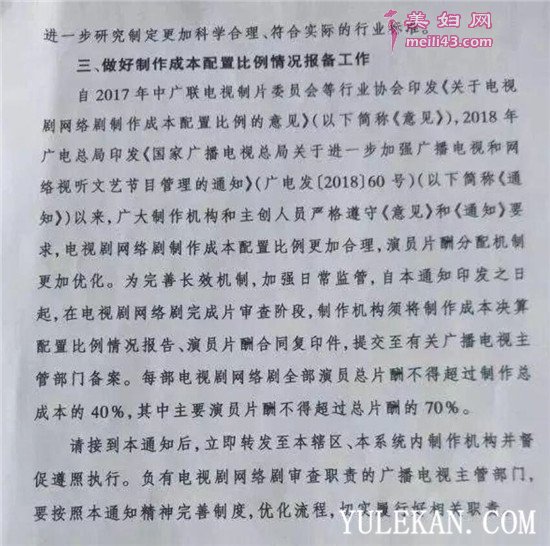 美妇网
meili43.com
进一步研究制定更加科学合理、符合实际的行业标准。
三、做好制作成本配置比例情况报备工作
自2017年中广联电视制片委员会等行业协会印发《关于电视
剧网络剧制作成本配置比例的意见》(以下简称《意见》),2018年
广电总局印发《国家广播电视总局关于进一步加强广播电视和网
络视听文艺节目管理的通知》(广电发〔2018〕60号)(以下简称《通
知》)以来,广大制作机构和主创人员严格遵守《意见》和《通知》要
求,电视剧网络剧制作成本配置比例更加合理,演员片酬分配机制
更加优化。为完善长效机制,加强日常监管,自本通知印发之日
起,在电视剧网络剧完成片审查阶段,制作机构须将制作成本决算
配置比例情况报告、演员片酬合同复印件,提交至有关广播电视主
管部门备案。每部电视剧网络剧全部演员总片酬不得超过制作总
成本的40%,其中主要演员片酬不得超过总片酬的70%。
请接到本通知后,立即转发至本辖区、本系统内制作机构并督
促遵照执行。负有电视剧网络剧审查职责的广播电视主管部门,
要按照本通知精神完善制度,优化流程,切实履行好相关职责
YULEKAN.COM